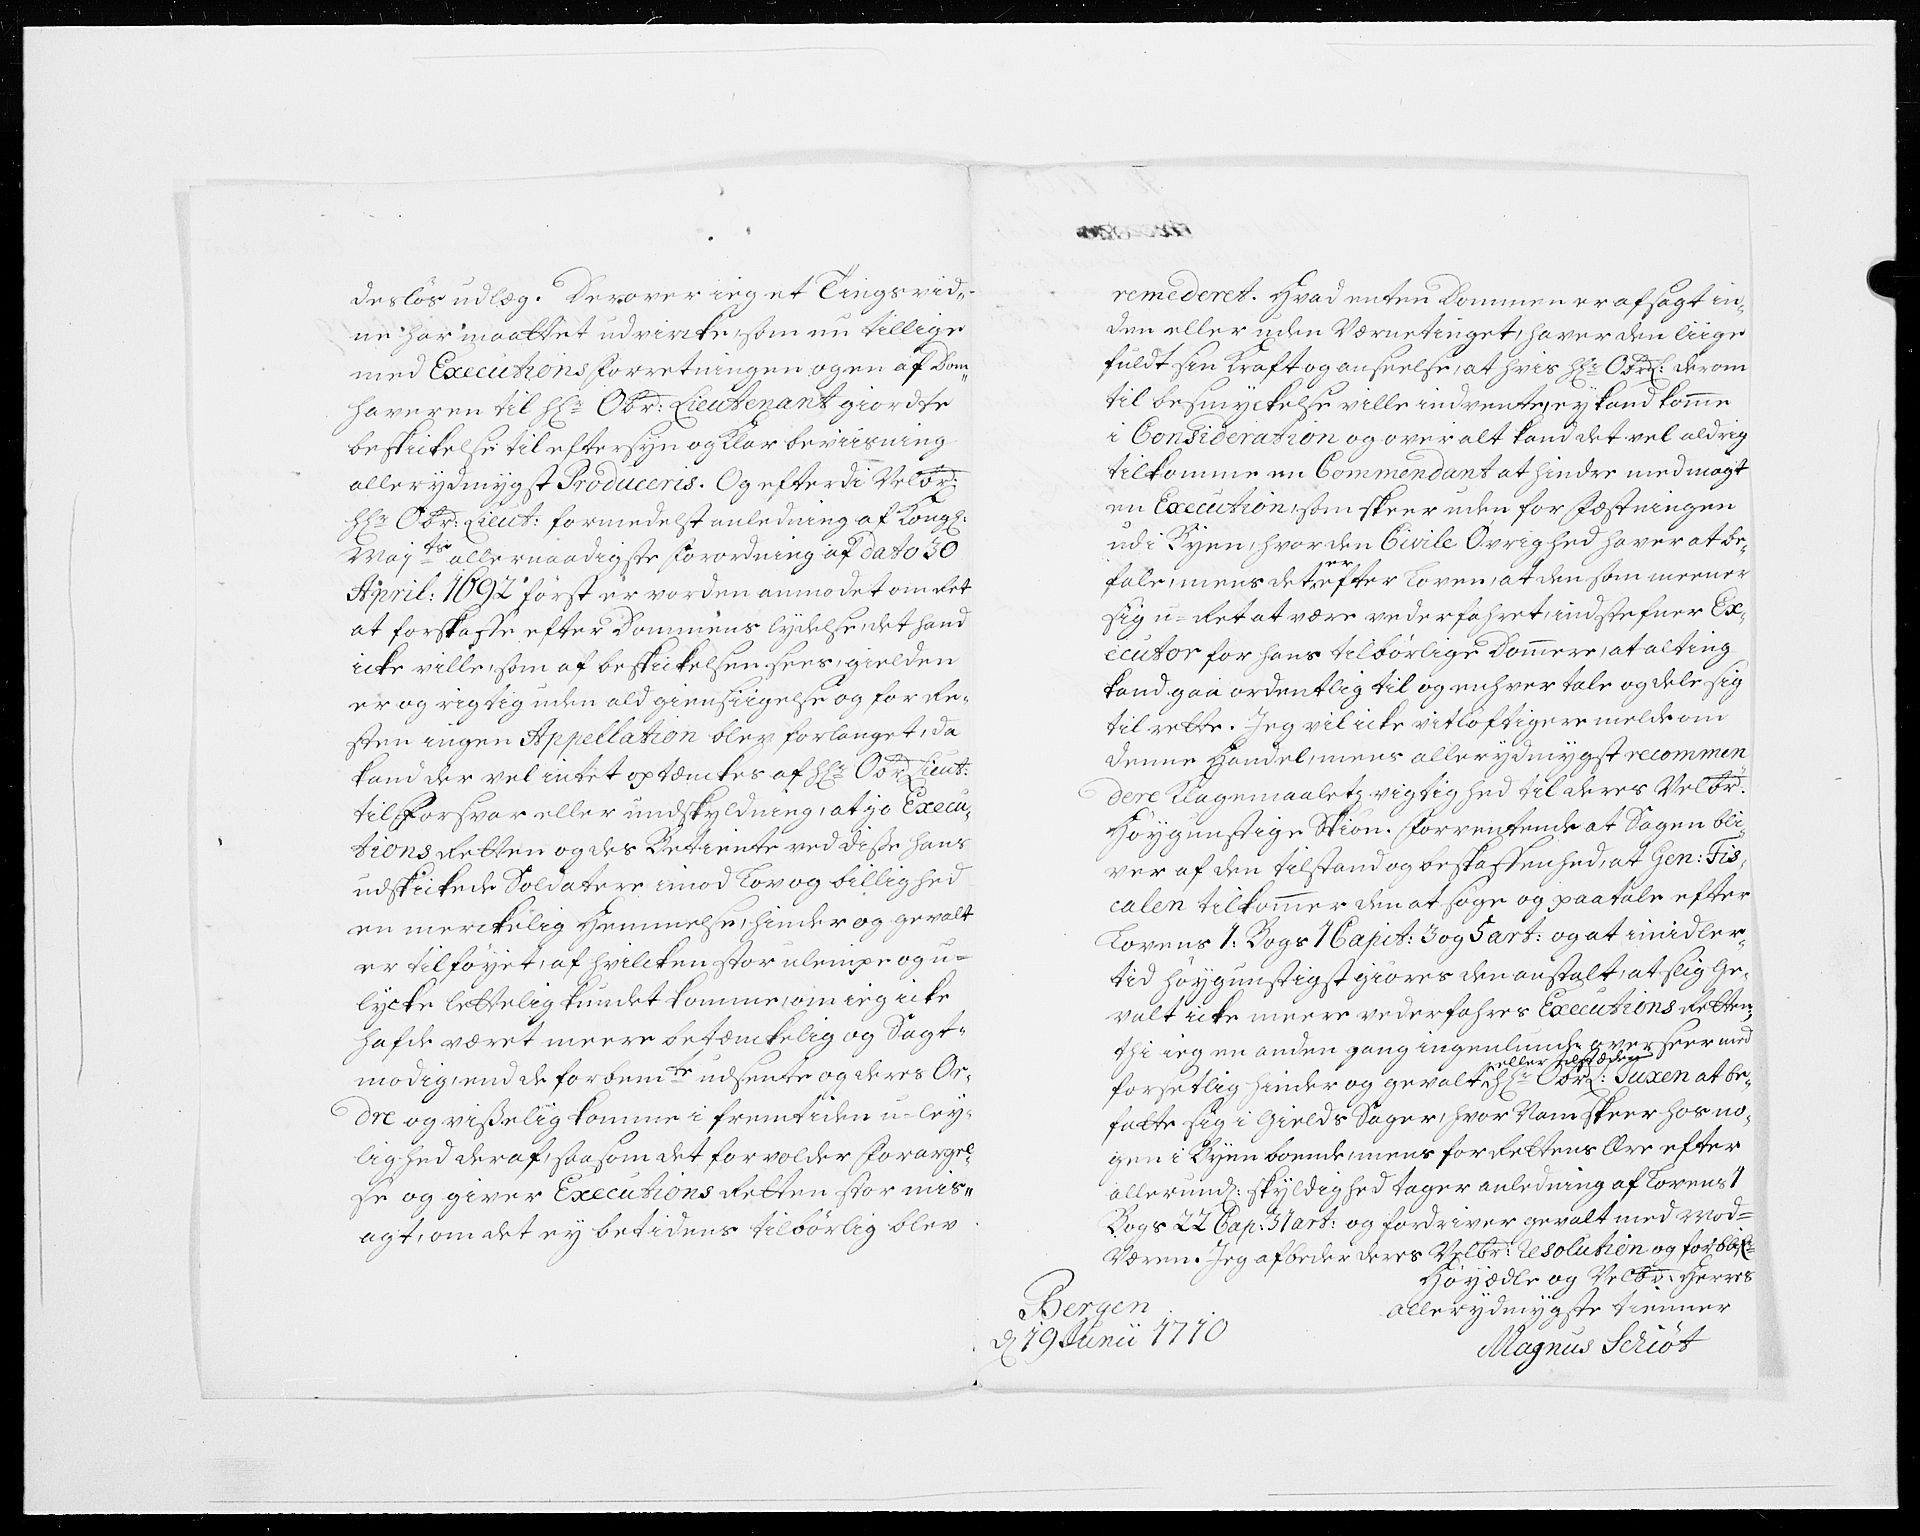 desløs udlæg. Derover ieg et Tingsvid-
ne har maattet udvircke, som nu tillige
med Executions Forretningen og en af Dom-
haveren til Hr: Obr: Lieutenant giordte
beskickelse til eftersyn og klar beviisning
allerydmygst Produceris. Og efterdi Velbr:
Hr: Obr: Lieut: formedelst anledning af Kongl:
Maj:ts allernaadigste Forordning af dato 30
April: 1692 først er vorden anmodet om Ret
at forskaffe efter Dommens lydelse, det hand
icke ville, som af beskickelsen sees, gielden
er og rigtig uden ald giensiigelse og for Re-
sten ingen Appellation blev forlanget, da
kand der vel intet optænckes af Hr: Obr: Lieut:
til Forsvar eller undskyldning, at jo Execu-
tions Retten og des Betiente ved disse hans
udskickede Soldatere imod Lov og billighed
en merckelig Hemmelse, hinder og gevalt
er tilføyet, af hvilcken stor ulempe og u-
lycke lettelig kundet komme, om ieg icke
hafde været meere betænckelig og Sagt-
modig, end de forbem:te udsente og deres Or-
dre og visselig komme i fremtiden u-ley-
lighed deraf, saasom det forvolder Forargel-
se og giver Executions Retten stor mis-
agt, om det ey betidens tilbørlig blev
remederet. Hvad enten Dommen er afsagt in-
den eller uden Værnetinget, haver den liige
fuldt sin Kraft og anseelse, at hvis Hr: Obrl: derom
til besmyckelse ville indvente, ey kand komme
i Consideration og overalt kand det vel aldrig
tilkomme en Commendant at hindre med magt
en Execution, som skeer uden for Fæstningen
udi Byen, hvor den Civile Øvrighed haver at be-
fale, mens det er efter Loven, at den som meener
sig u-Ret at være vederfahret, indstefner Ex-
ecutor for hans tilbørlige Dommere, at alting
kand gaa ordentlig til og enhver tale og dele sig
til rette. Jeg vil icke vitløftigere melde om
denne Handel, mens allerydmygst recommen-
dere Klagemaaletz vigtighed til deres Velbr:
Høygunstige Skiøn. Forventende at Sagen bli-
ver af den tilstand og beskaffenhed, at Gen: Fis-
calen tilkommer den at søge og paatale efter
Lovens 1: Bogs 1 Capit: 3 og 5 art: og at imidler-
tid høygunstigst giøres den anstalt, at slig Ge-
valt icke meere vederfahres Executions Retten,
thi ieg en anden gang ingenlunde overseer med
forsetlig hinder og gevalt eller tilstæden Hr: Obrl: Tuxen at be-
fatte sig i Gields Sager, hvor Nam skeer hos no-
gen i Byen boende, mens for Rettens Ære efter
allerund: skyldighed tager anledning af Lovens 1
Bogs 22 Cap: 31 art: og fordriver gevalt med Mod-
Væren. Jeg afbeder deres Velbr: Resolution og forbl:
Høyædle og Velbr: Herres
allerydmygste tienner
Magnus Schiøt
Bergen
d 19 Junii 1710